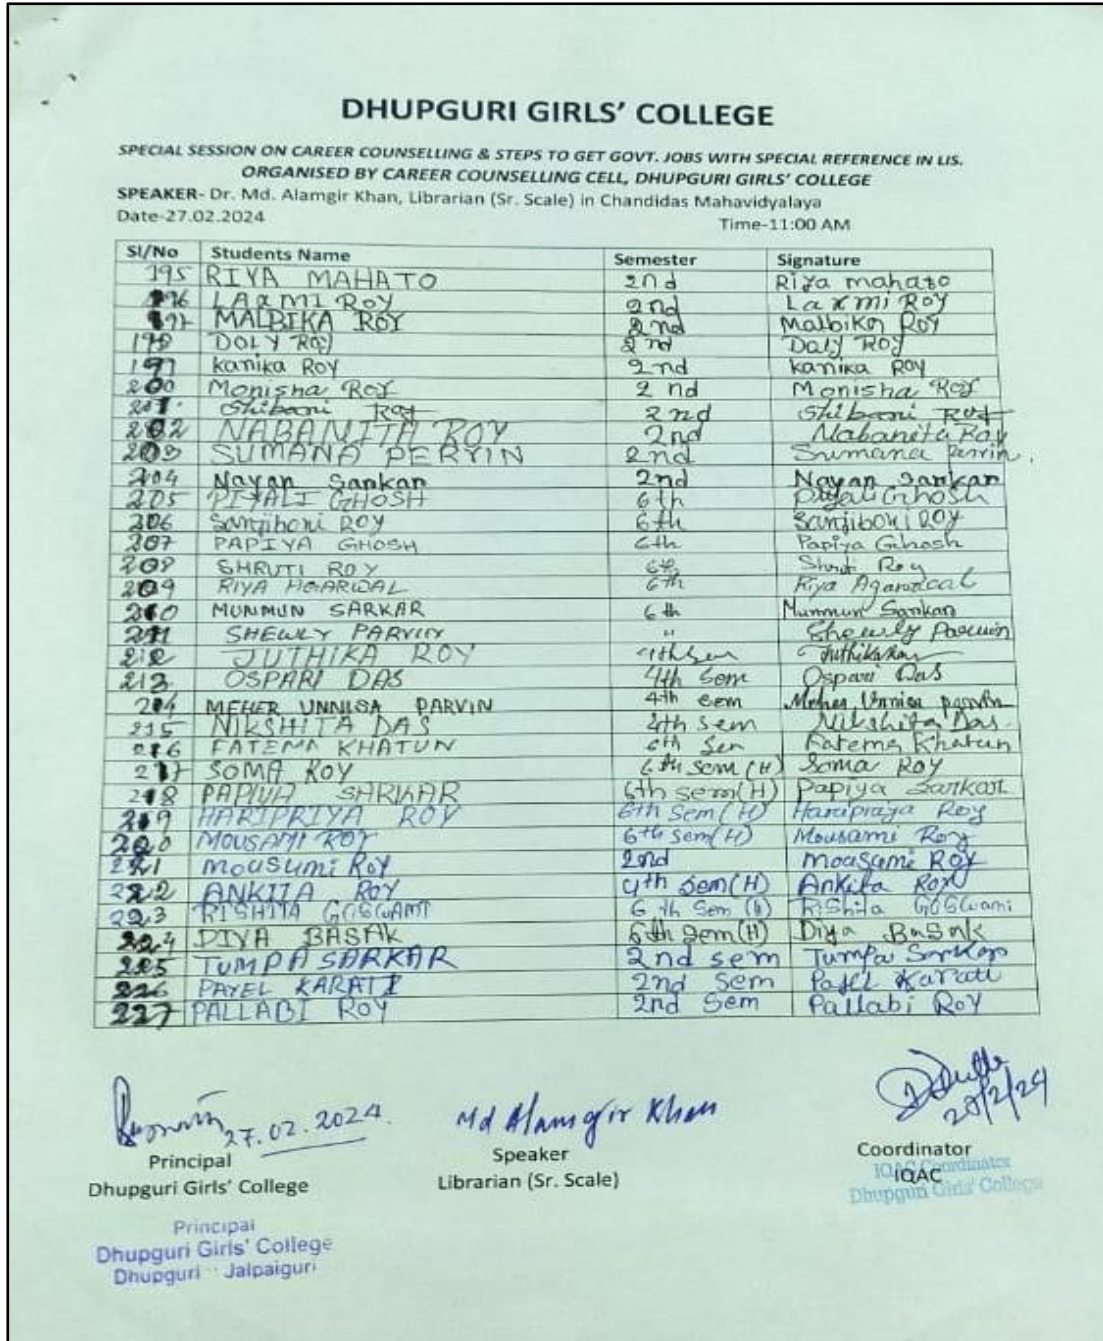 DHUPGURI GIRLS' COLLEGE
SPECIAL SESSION ON CAREER COUNSELLING & STEPS TO GET GOVT. JOBS WITH SPECIAL REFERENCE IN LIS.
ORGANISED BY CAREER COUNSELLING CELL, DHUPGURI GIRLS' COLLEGE
SPEAKER- Dr. Md. Alamgir Khan, Librarian (Sr. Scale) in Chandidas Mahavidyalaya
Date-27.02.2024 Time-11:00 AM
Sl/No Students Name Semester Signature
195 RIYA MAHATO 2nd Riya mahato
196 LAXMI ROY 2nd Laxmi ROY
197 MALBIKA ROY 2nd Malbika ROY
198 DOLY ROY 2nd Doly ROY
199 kanika ROY 2nd kanika ROY
200 Monisha Roy 2nd Monisha Roy
201 Shibani Roy 2nd Shibani Roy
202 NABANITA ROY 2nd Nabanita Roy
203 SUMANA PERVIN 2nd Sumana Parvin.
204 Nayan Sarkar 2nd Nayan Sarkar
205 PIYALI GHOSH 6th Piyali Ghosh
206 Sanjiboni ROY 6th Sanjiboni ROY
207 PAPIYA GHOSH 6th Papiya Ghosh
208 SHRUTI ROY 6th Shruti Roy
209 RIYA AGARWAL 6th Riya Agarwal
210 MUNMUN SARKAR 6th Munmun Sarkar
211 SHEWLY PARVIN " Shewly Parvin
212 JUTHIKA ROY 4th Sem Juthika Roy
213 OSPARI DAS 4th Sem Ospari Das
214 MEHER UNNISA PARVIN 4th sem Meher Unnisa parvin
215 NIKSHITA DAS 4th Sem Nikshita Das
216 FATEMA KHATUN 6th Sem Fatema Khatun
217 SOMA ROY 6th Sem (H) Soma Roy
218 PAPIYA SARKAR 6th sem(H) Papiya Sarkar
219 HARIPRIYA ROY 6th Sem (H) Haripriya Roy
220 MOUSAMI ROY 6th sem(H) Mousami Roy
221 mousumi Roy 2nd mousumi Roy
222 ANKITA ROY 4th Sem(H) Ankita Roy
223 RISHITA GOSWAMI 6th Sem Rishita GOSwami
224 DIYA BASAK 6th Sem(H) Diya Basak
225 TUMPA SARKAR 2nd sem Tumpa Sarkar
226 PAYEL KARATI 2nd Sem Payel Karati
227 PALLABI ROY 2nd Sem Pallabi Roy
27.02.2024. Md Alamgir Khan
Principal Speaker Coordinator
Dhupguri Girls' College Librarian (Sr. Scale) IQAC
IQAC Coordinator
Dhupguri Girls' College
Principal
Dhupguri Girls' College
Dhupguri Jalpaiguri